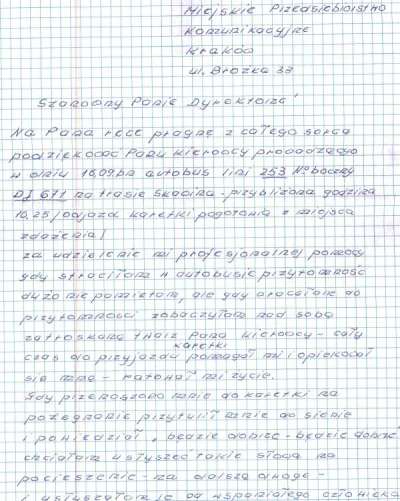 Miejskie Przedsiębiorstwo
Komunikacyjne
Kraków
ul. Brożka 3a
Szanowny Panie Dyrektorze
Na Pana ręce pragnę z całego serca
podziękować Panu kierowcy prowadzącego
w dniu 16.09br autobus lini 253 Nr boczny
DJ 611 na trasie Skawina - przybliżona godzina
16,25 /odjazd karetki pogotowia z miejsca
zdażenia/
za udzielenie mi profesjonalnej pomocy
gdy straciłam w autobusie przytomność
dużo nie pamiętam, ale gdy wracałam do
przytomności zobaczyłam nad sobą
zatroskaną twarz Pana kierowcy - cały
czas do przyjazdu karetki pomagał mi i opiekował
się mną - ratował mi życie.
Gdy przenoszono mnie do karetki na
pożegnanie przytulił mnie do siebie
i powiedział "będzie dobrze - będzie dobrze"
chciałam usłyszeć takie słowa na
pocieszenie - na dalszą drogę -
i usłyszałam je od wspaniałego człowieka